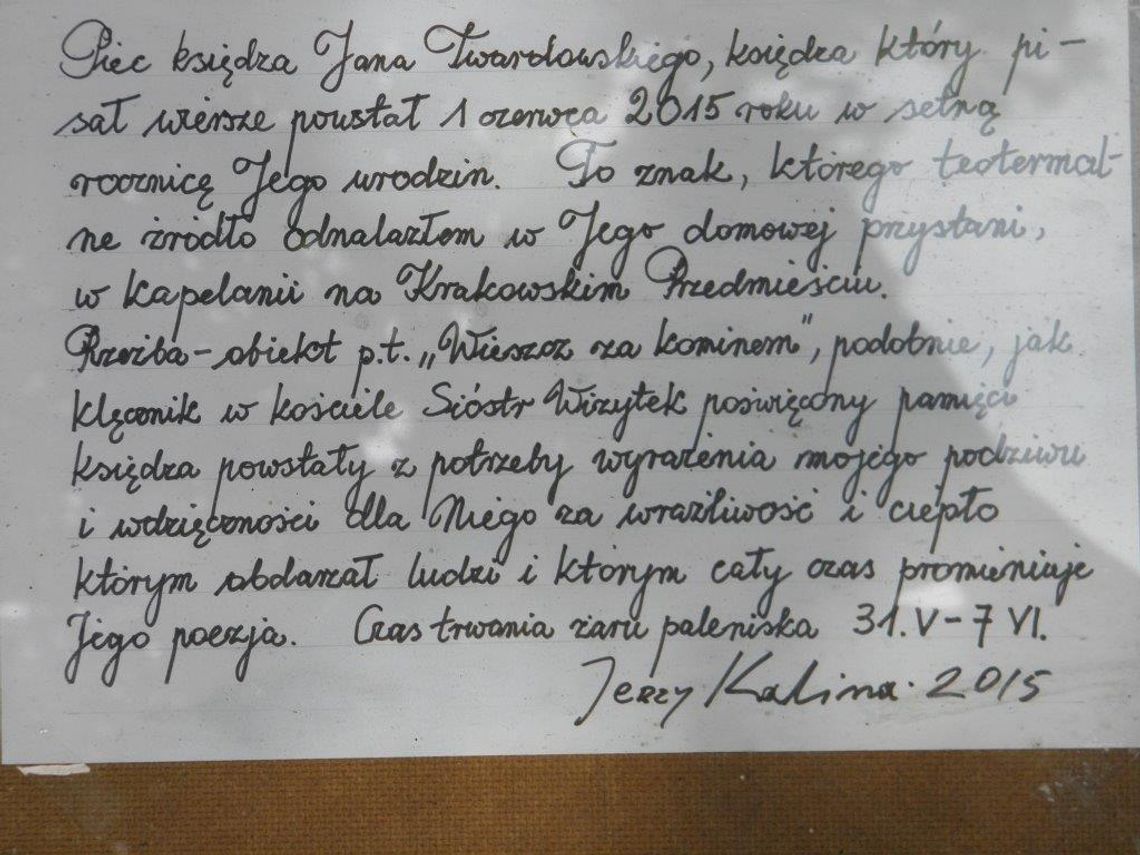 Piec księdza Jana Twardowskiego, księdza który pi-
sał wiersze powstał 1 czerwca 2015 roku w setną
rocznicę Jego urodzin. To znak, którego teotermal-
ne źródło odnalazłem w Jego domowej przystani,
w kapelanii na Krakowskim Przedmieściu.
Rzeźba-obiekt p.t. „Wieszcz za kominem", podobnie, jak
klęcznik w kościele Sióstr Wizytek poświęcony pamięci
księdza powstały z potrzeby wyrażenia mojego podziwu
i wdzięczności dla Niego za wrażliwość i ciepło
którym obdarzał ludzi i którym cały czas promieniuje
Jego poezja. Czas trwania żaru paleniska 31. V - 7 VI.
Jerzy Kalina. 2015